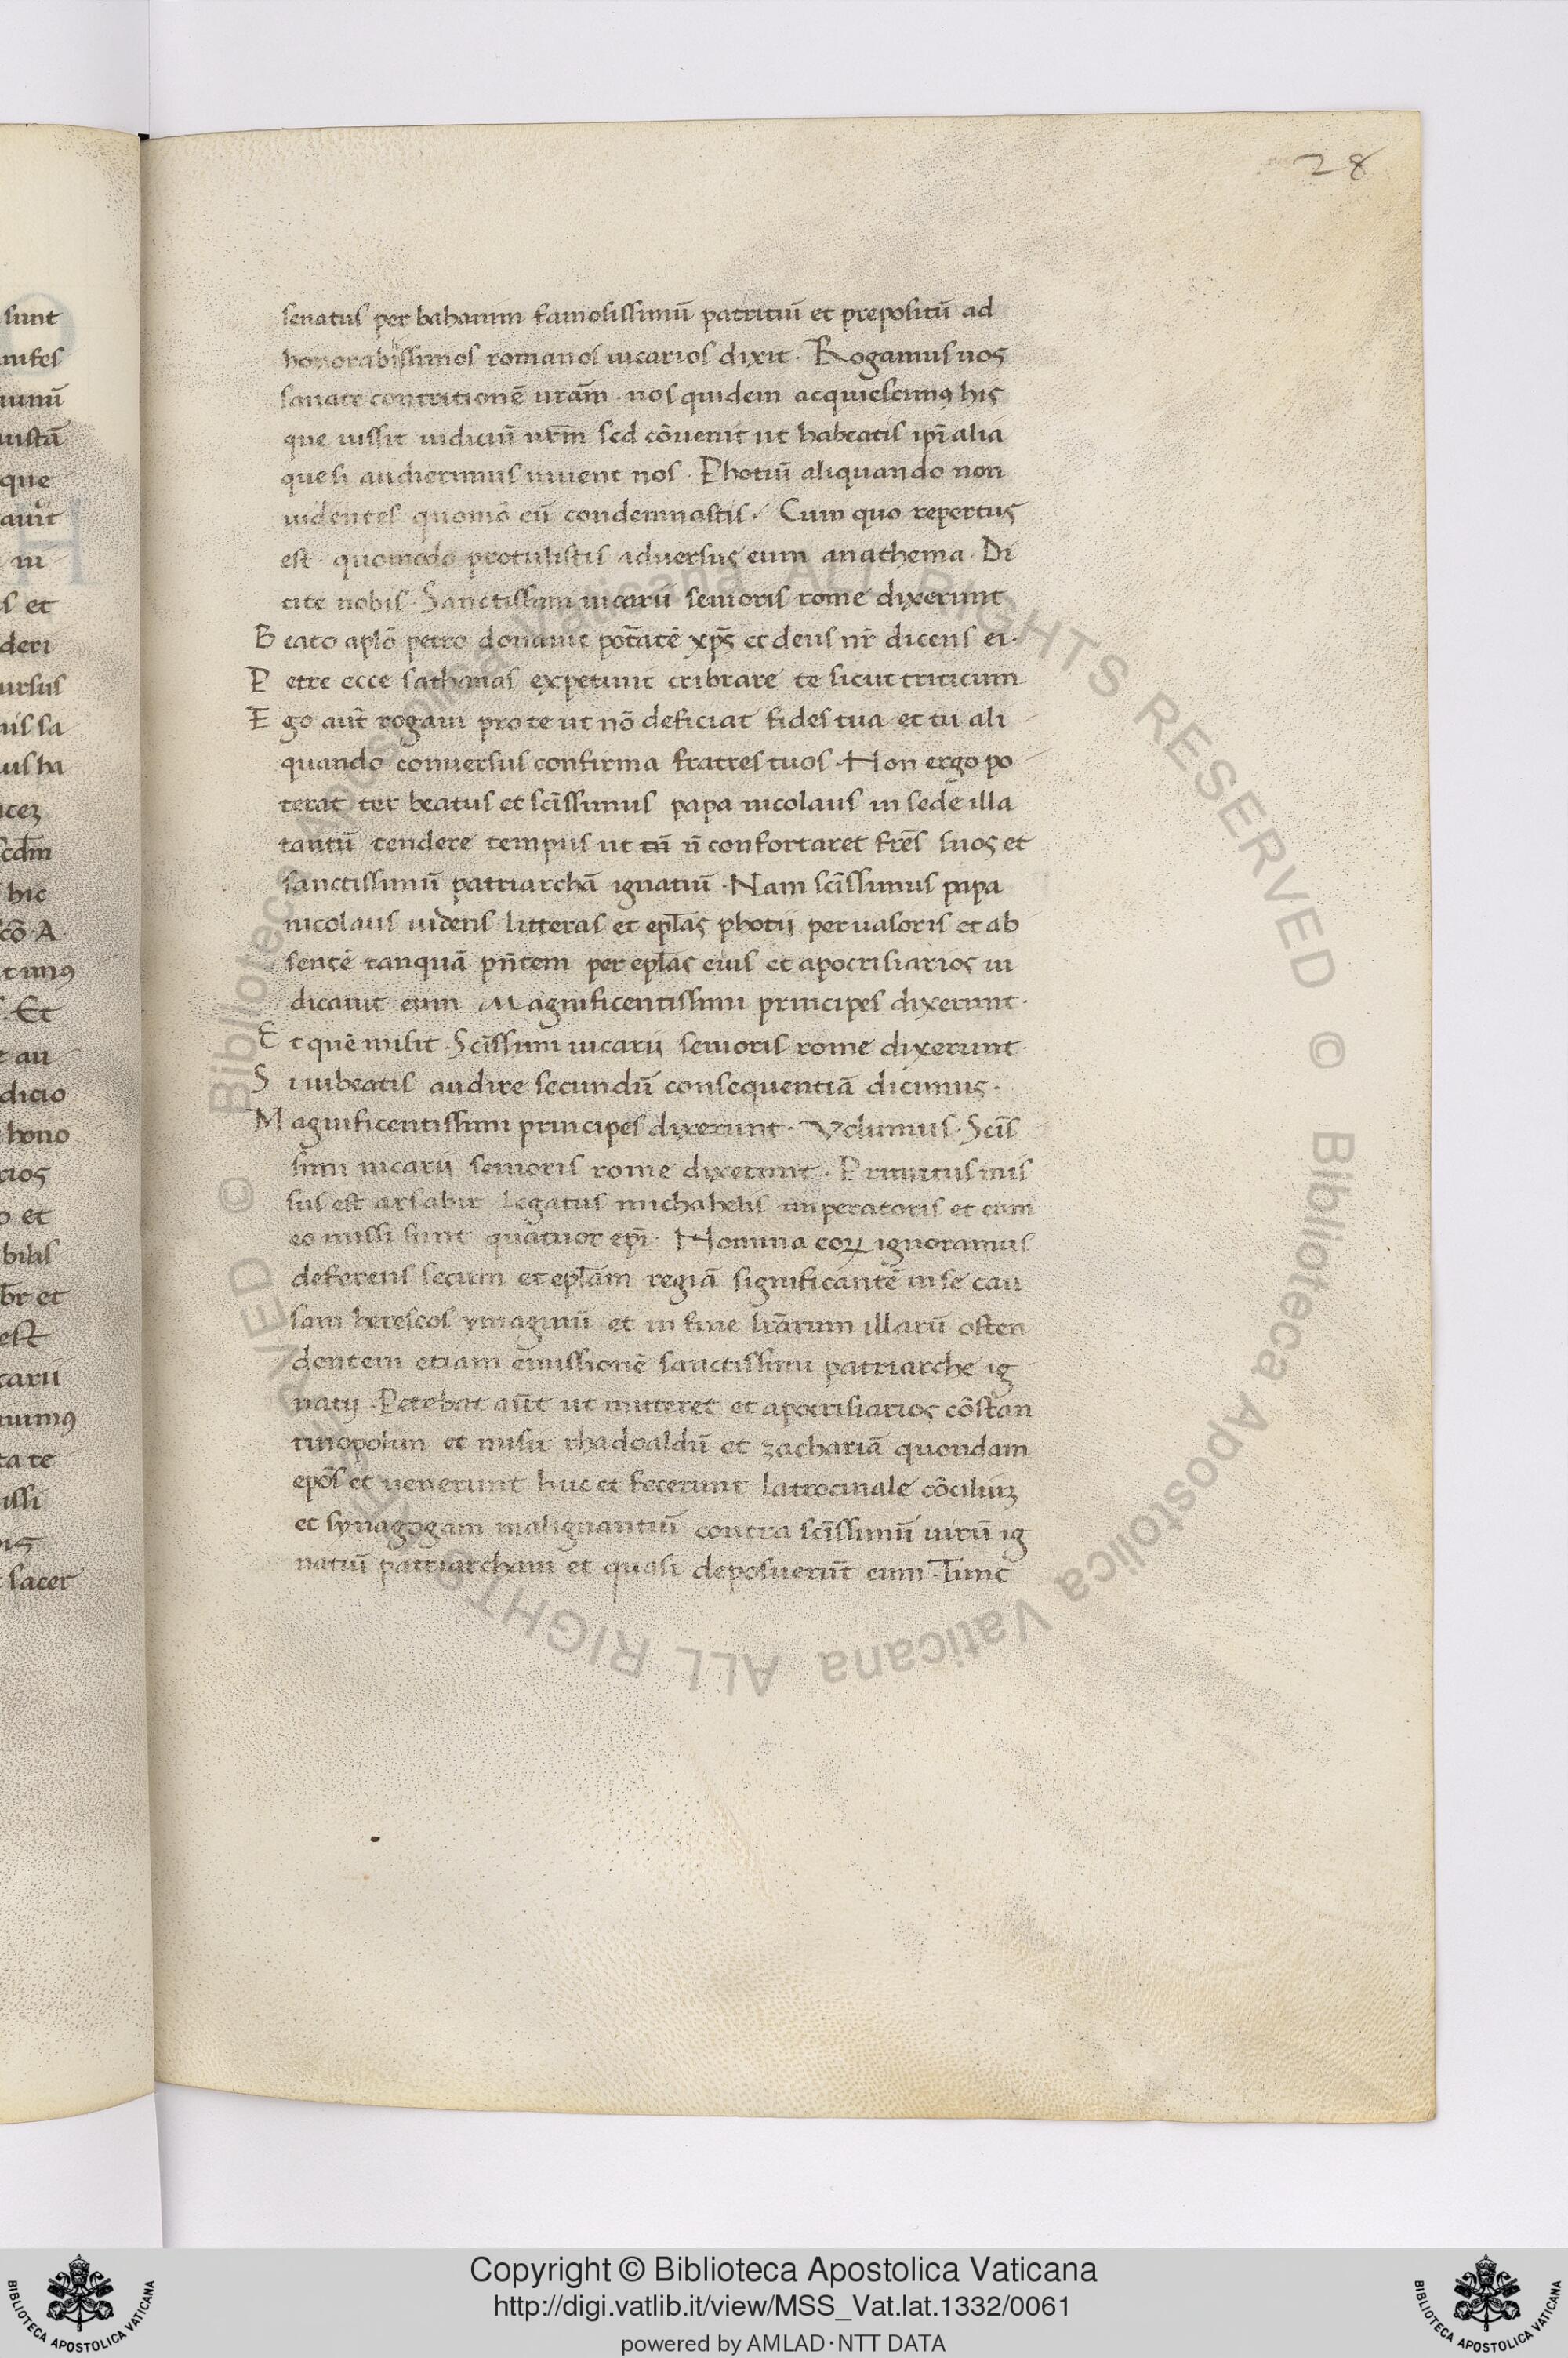 28
senatus per bahanım famosissimū patritiū et prepositū ad
honorabissimos romanos uicarios dixit. Rogamus uos
sanate contritionē uram̄. nos quidem acquiescimꝰ his
que iussit iudiciū urm̄ sed cōuenit ut habeatis ip̄i alia
que si audierimus iuuent nos. Photiū aliquando non
uidentes quomō eū condemnastis. Cum quo repertus
est quomodo protulistis aduersus eum anathema. Di
cite nobis. Sanctissimi uicarii senioris rome dixerunt
Beato aplō petro donauit potātē xp̄s et deus nr̄ dicens ei.
Petre ecce sathanas expetiuit cribrare te sicut triticum
Ego aut̄ rogaui pro te ut nō deficiat fides tua et tu ali
quando conuersus confirma fratres tuos. Non ergo po
terat ter beatus et scīssimus papa nicolaus in sede illa
tantū tendere tempus ut tn̄ n̄ confortaret fres̄ suos et
sanctissimū patriarchā ignatiū. Nam scīssimus papa
nicolaus uidens litteras et eplās photij peruasoris et ab
sentē tanquā pn̄tem per eplās eius et apocrisiarios iu
dicauit eum Magnificentissimi principes dixerunt.
Et quē misit. Scīssimi uicarij senioris rome dixerunt.
Si iubeatis audire secundū consequentiā dicimus.
Magnificentissimi principes dixerunt. Volumus. Scīs
simi uicarij senioris rome dixerunt. Primitus mis
sus est arsabir legatus michahelis imperatoris et cum
eo missi sunt quatuor epī. Nomina eoꝝ ignoramus
deferens secum et eplām regiā significantē in se cau
sam hereseos ymaginū et in fine lrārum illarū osten
dentem etiam emissionē sanctissimi patriarche ig
natij. Petebat aūt ut mitteret et apocrisiarios cōstan
tinopolim et misit rhadoaldū et zachariā quondam
epōs et uenerunt huc et fecerunt latrocinale cōciliuꝫ
et synagogam malignantiū contra scīssimū uirū ig
natiū patriarcham et quasi deposuerūt eum. Tunc
sunt
que
et
deri
hic
dicio
hono
et
est
sacer
© Biblioteca Apostolica Vaticana ALL RIGHTS RESERVED © Biblioteca Apostolica Vaticana ALL RIGHTS RESERVED
Copyright © Biblioteca Apostolica Vaticana
http://digi.vatlib.it/view/MSS_Vat.lat.1332/0061
powered by AMLAD·NTT DATA
BIBLIOTECA APOSTOLICA VATICANA
BIBLIOTECA APOSTOLICA VATICANA